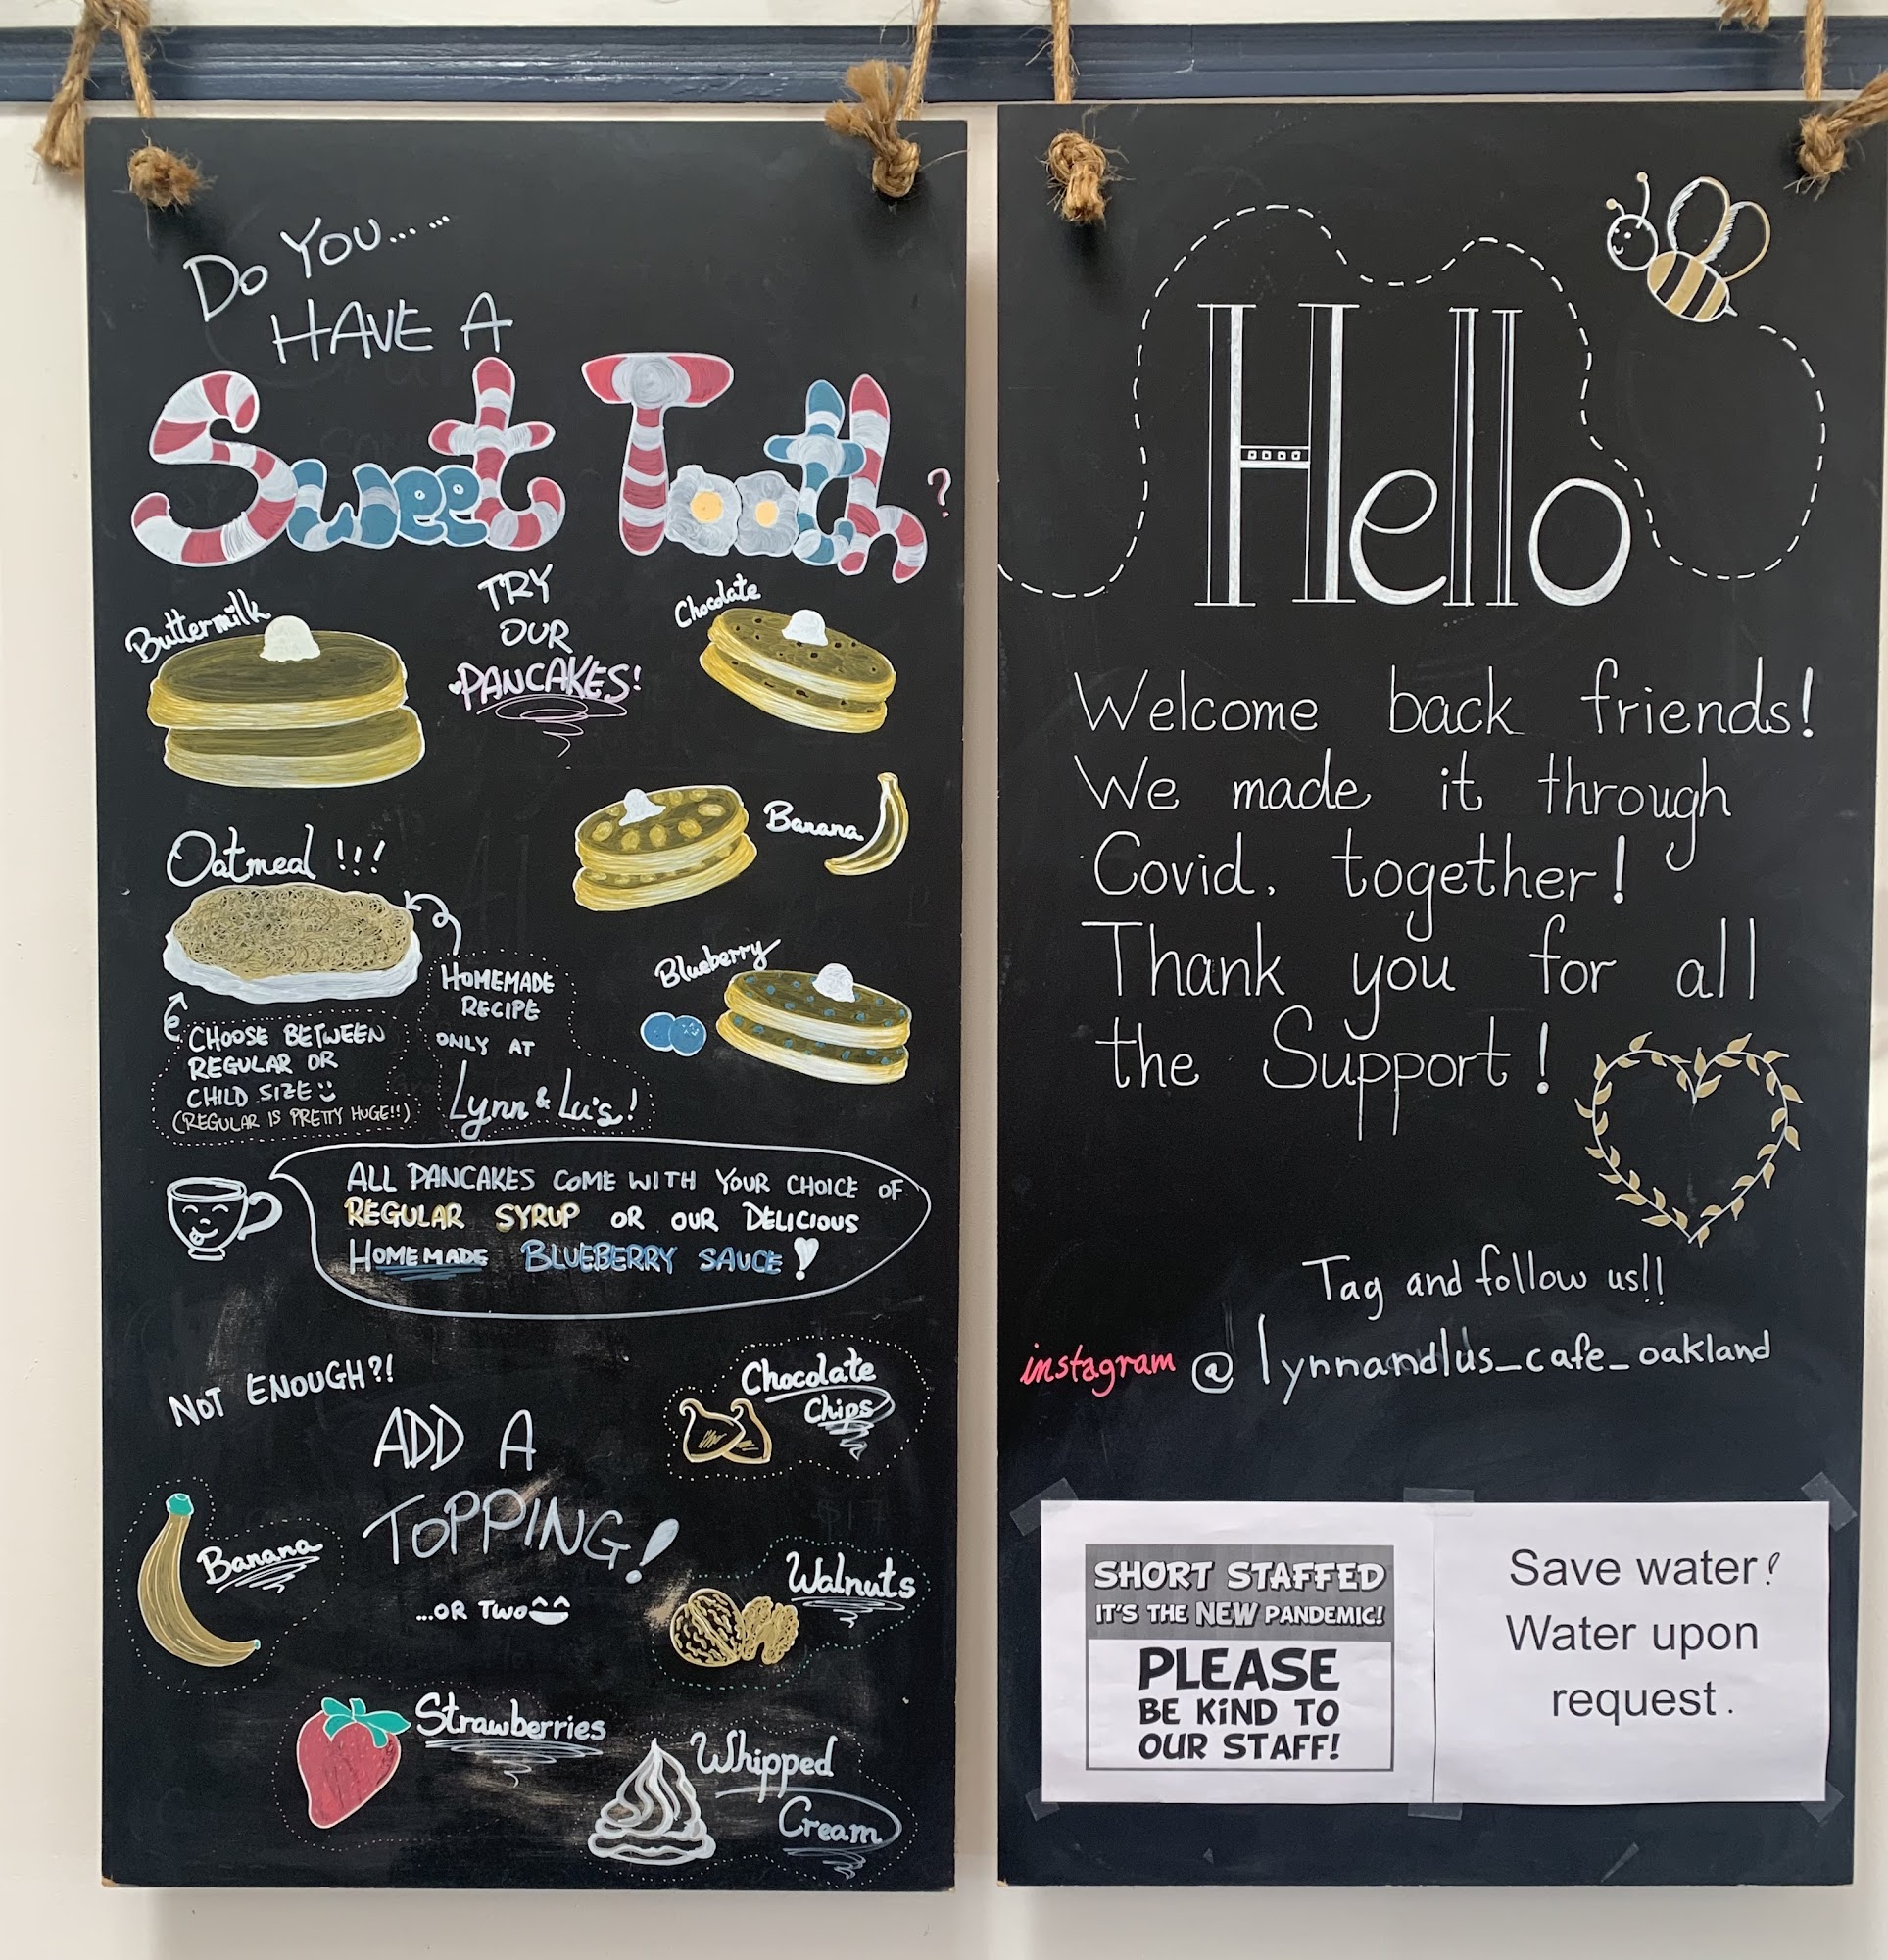 Do You......
HAVE A
Sweet Tooth?
TRY
OUR
PANCAKES!
Buttermilk
Chocolate
Banana
Oatmeal !!!
Blueberry
HOMEMADE
RECIPE
ONLY AT
Lynn & Lu's!
CHOOSE BETWEEN
REGULAR OR
CHILD SIZE
(REGULAR IS PRETTY HUGE!!)
ALL PANCAKES COME WITH YOUR CHOICE OF
REGULAR SYRUP OR OUR DELICIOUS
HOMEMADE BLUEBERRY SAUCE!
NOT ENOUGH?!
ADD A
TOPPING!
...OR TWO
Chocolate
Chips
Banana
Walnuts
Strawberries
Whipped
Cream
Hello
Welcome back friends!
We made it through
Covid. together!
Thank you for all
the Support!
Tag and follow us!!
instagram @lynnandlus_cafe_oakland
SHORT STAFFED
IT'S THE NEW PANDEMIC!
PLEASE
BE KiND TO
OUR STAFF!
Save water!
Water upon
request.